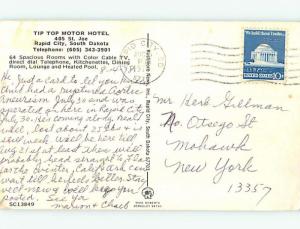 TIP TOP MOTOR HOTEL
405 St. Joe
Rapid City, South Dakota
Telephone: (605) 343-3901
64 Spacious Rooms with Color Cable TV,
direct dial Telephone, Kitchenettes, Dining
Room, Lounge and Heated Pool.
Hi Just a card to let you know
Chad had a ruptured Aortic
aneurysm July 30 and was
operated on here in Rapid City
July 30. He's coming along really
well, lost about 25 lbs & is
so weak. We'll be here till
Aug 21 after that
probably head straight to
for the winter, California can
wait till he feels better. Stay
well - now & will keep you
posted. See ya
Marion & Chad
SC13849
RAPID CITY
We hold these Truths...
10c
Mr Herb Gillman
No. Otsego St
Mohawk
New York
13357